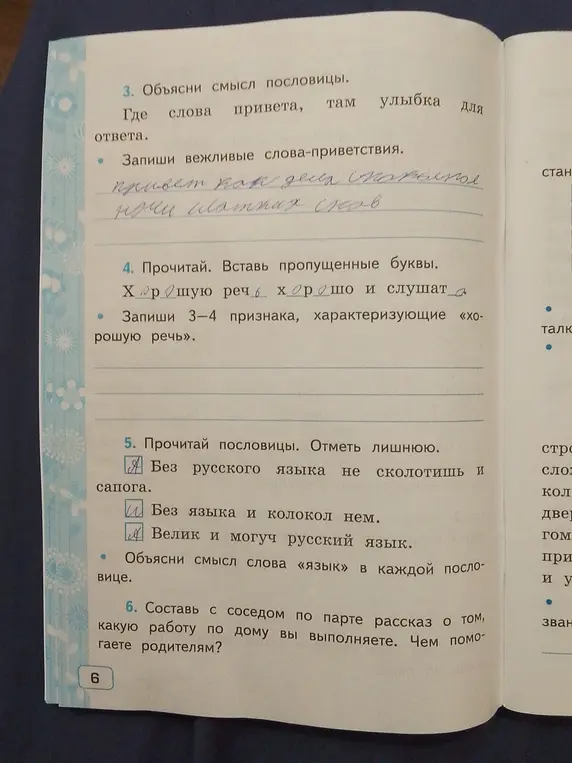 3. Объясни смысл пословицы.
Где слова привета, там улыбка для
ответа.
• Запиши вежливые слова-приветствия.
привет как дела спокойной
ночи сладких снов
4. Прочитай. Вставь пропущенные буквы.
Хорошую речь хорошо и слушат
• Запиши 3—4 признака, характеризующие «хо-
рошую речь».
5. Прочитай пословицы. Отметь лишнюю.
Без русского языка не сколотишь и
сапога.
Без языка и колокол нем.
Велик и могуч русский язык.
• Объясни смысл слова «язык» в каждой посло-
вице.
6. Составь с соседом по парте рассказ о том,
какую работу по дому вы выполняете. Чем помо-
гаете родителям?
6
стан
•
талк
•
стро
слож
кол
двер
гом
при
и у
•
зван